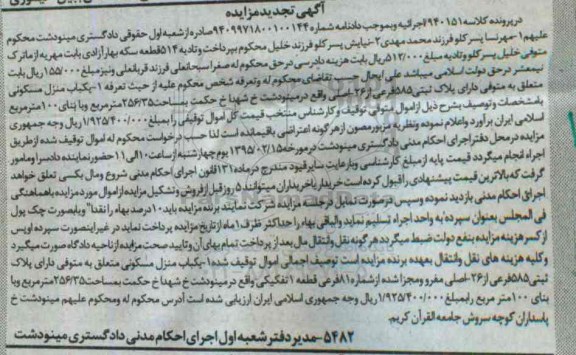 آگهی تجدید مزایده
در پرونده کلاسه ۹۴۰۱۵۱ اجرائیه و بموجب دادنامه شماره ۹۴۰۹۹۷۱۸۰۰۱۰۰۱۴۴ صادره از شعبه اول حقوقی دادگستری مینودشت محکوم
علیهم ۱- مهرنسا پسر کلو فرزند محمد مهدی ۲- نیایش پسر کلو فرزند خلیل محکوم بپرداخت و تادیه ۵۱۴ قطعه سکه بهار آزادی بابت مهریه از ماترک
متوفی خلیل پسر کلو و تادیه مبلغ ۵۱۲/۰۰۰ ریال بابت هزینه دادرسی در حق محکوم له صفرا سبحانعلی فرزند قربانعلی و نیز مبلغ ۱۵۵/۰۰۰ ریال بابت
نیمعشر در حق دولت اسلامی میباشد علی ایحال حسب تقاضای محکوم له و تعرفه شخص محکوم علیه از حیث تعرفه ۱- یکباب منزل مسکونی
متعلق به متوفی دارای پلاک ثبتی ۵۸۵ فرعی از ۲۶- اصلی واقع در مینودشت خ شهدا خ حکمت بمساحت ۲۵۶/۳۵ مترمربع وبا بنای ۱۰۰ مترمربع
بامشخصات و توصیف بشرح ذیل از اموال متوفی توقیف و کارشناس منتخب قیمت کل اموال توقیفی را بمبلغ ۱/۹۲۵/۴۰۰/۰۰۰ ریال وجه جمهوری
اسلامی ایران برآورد و اعلام نموده و نظریه مزبور مصون از هر گونه اعتراضی باقیمانده است لذا حسب درخواست محکوم له اموال توقیف شده از طریق
مزایده در محل دفتر اجرای احکام مدنی دادگستری مینودشت در مورخه ۱۳۹۵/۰۲/۱۵ یوم چهارشنبه از ساعت ۱۰ الی ۱۱ حضور نماینده دادسرا و مامور
اجراء انجام میگردد قیمت پایه از مبلغ کارشناسی و با رعایت سایر قیود مندرج در ماده ۱۳۱ قانون اجرای احکام مدنی شروع و مال بکسی تعلق خواهد
گرفت که بالاترین قیمت پیشنهادی را قبول کرده است خریدار یا خریداران میتوانند ۵ روز قبل از فروش و تشکیل مزایده از اموال مورد مزایده با هماهنگی
اجرای احکام مدنی بازدید نموده و سپس در صورت تمایل در جلسه مزایده شرکت نمایند برنده مزایده باید ۱۰ درصد بهاء را نقدا" و بصورت چک پول
فی المجلس بعنوان سپرده به واحد اجراء تسلیم نماید و الباقی بهاء را حداکثر ظرف ۱ ماه از تاریخ مزایده پرداخت نماید در غیر اینصورت سپرده او پس
از کسر هزینه مزایده بنفع دولت ضبط میگردد هر گونه نقل و انتقال مال بعد از پرداخت تمام بهای آن و تایید صحت مزایده از ناحیه دادگاه صورت میگیرد
و کلیه هزینه های نقل و انتقال بعهده برنده مزایده است توصیف اجمالی اموال توقیف شده ۱- یکباب منزل مسکونی متعلق به متوفی دارای پلاک
ثبتی ۵۸۵ فرعی از ۲۶- اصلی مفروز و مجزا شده از شماره ۸۱ فرعی قطعه ۱ تفکیکی واقع در مینودشت خ شهدا خ حکمت بمساحت ۲۵۶/۳۵ مترمربع وبا
بنای ۱۰۰ متر مربع را بمبلغ ۱/۹۲۵/۴۰۰/۰۰۰ ریال وجه جمهوری اسلامی ایران ارزیابی شده است آدرس محکوم له و محکوم علیهم مینودشت خ
پاسداران کوچه سروش جامعه القرآن کریم.
۵۴۸۲- مدیر دفتر شعبه اول اجرای احکام مدنی دادگستری مینودشت